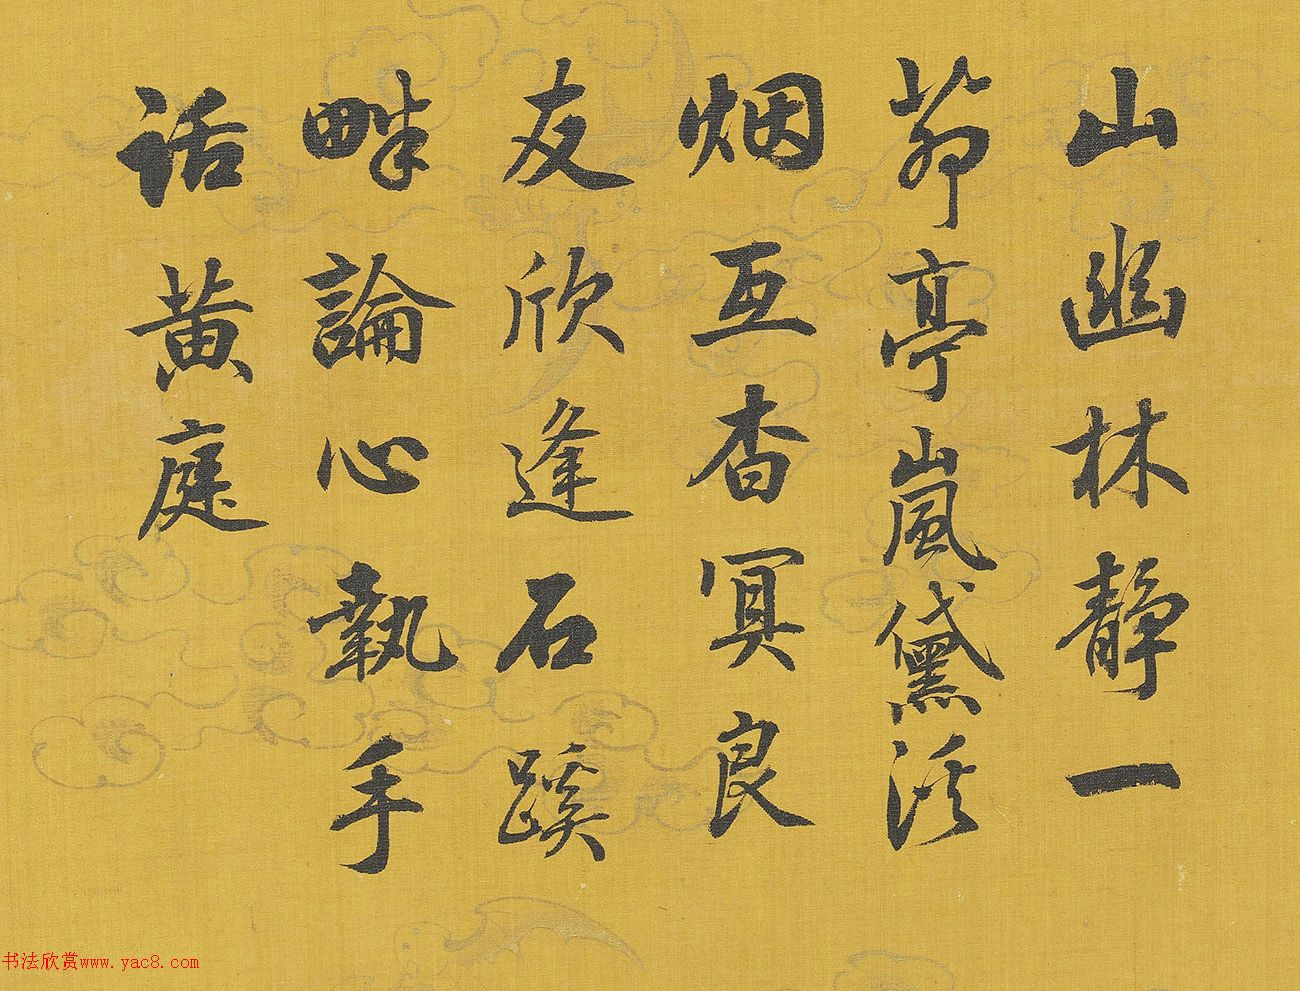 山幽林静一
茆亭嵐黛溪
烟互杳冥良
友欣逢石蹊
畔論心執手
話黃庭
书法欣赏www.yac8.com